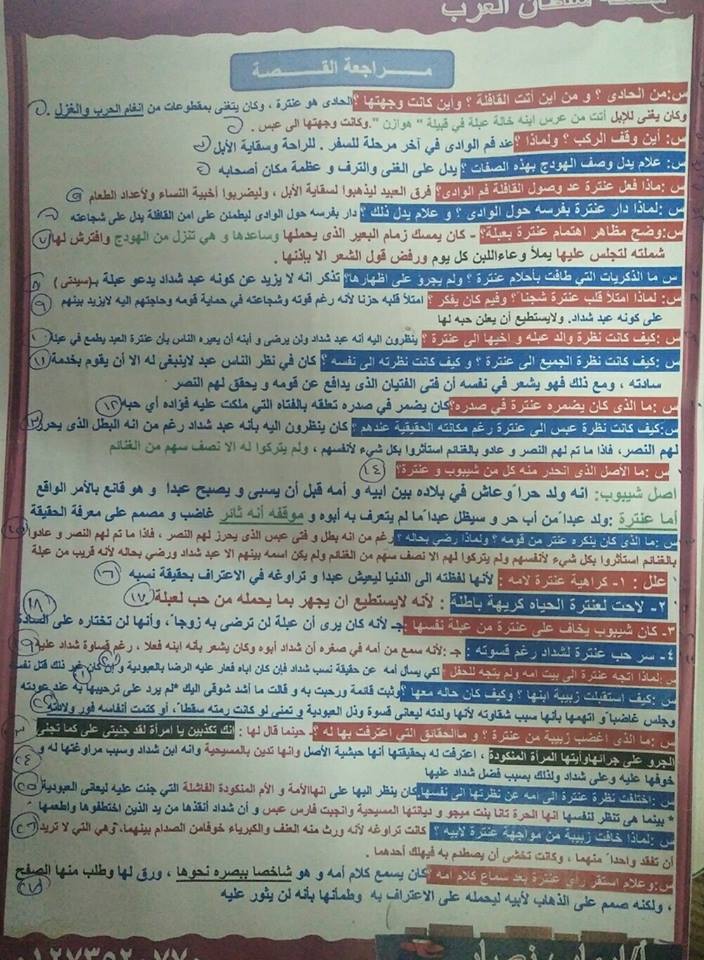 سلطان العرب
مراجعة القصة
س:من الحادى ؟ و من اين أتت القافلة ؟ وأين كانت وجهتها ؟ الحادى هو عنترة ، وكان يتغنى بمقطوعات من انغام الحرب والغزل .
وكان يغنى للإبل أتت من عرس ابنه خالة عبلة في قبيلة " هوازن " .وكانت وجهتها الى عبس .
س: أين وقف الركب ؟ ولماذا ؟ عند فم الوادى في آخر مرحلة للسفر . للراحة وسقاية الأبل
س: علام يدل وصف الهودج بهذه الصفات ؟ يدل على الغنى والترف و عظمة مكان أصحابه
س :ماذا فعل عنترة عد وصول القافلة قم الوادى؟ فرق العبيد ليذهبوا لسقاية الأبل ، وليضربوا أخبية النساء ولأعداد الطعام
س :لماذا دار عنترة بفرسه حول الوادى ؟ و علام يدل ذلك ؟ دار بفرسه حول الوادى ليطمئن على امن القافلة يدل على شجاعته
س:وضح مظاهر اهتمام عنترة بعبلة؟ - كان يمسك زمام البعير الذى يحملها وساعدها و هي تنزل من الهودج وافترش لها
شملته لتجلس عليها يملأ وعاءاللبن كل يوم ورفض قول الشعر الا بإذنها .
س ما الذكريات التي طافت بأحلام عنترة ؟ ولم يجرؤ على اظهارها؟ تذكر انه لا يزيد عن كونه عبد شداد يدعو عبلة بـ(سيدتى)
س: لماذا امتلأ قلب عنترة شجنا ؟ وفيم كان يفكر ؟ امتلأ قلبه حزنا لأنه رغم قوته وشجاعته في حماية قومه وحاجتهم اليه لايزيد بينهم
على كونه عبد شداد. ولايستطيع أن يعلن حبه لها
س :كيف كانت نظرة والد عبله و اخيها الى عنترة ؟ ينظرون اليه أنه عبد شداد ولن يرضى و ابنه أن يعيره الناس بأن عنترة العبد يطمع في عبلة
س :كيف كانت نظرة الجميع الى عنترة ؟ و كيف كانت نظرته الى نفسه ؟ كان في نظر الناس عبد لاينبغى له الا أن يقوم بخدمة
سادته ، ومع ذلك فهو يشعر في نفسه أن فتى الفتيان الذى يدافع عن قومه و يحقق لهم النصر
س :ما الذى كان يضمره عنترة في صدره؟ كان يضمر في صدره تعلقه بالفتاه التي ملكت عليه فؤاده أي حبه
س:كيف كانت نظرة عبس الى عنترة رغم مكانته الحقيقية عندهم ؟ كان ينظرون اليه بأنه عبد شداد رغم من انه البطل الذى يحرز
لهم النصر، فاذا ما تم لهم النصر و عادو بالغنائم استأثروا بكل شيء لأنفسهم ، ولم يتركوا له الا نصف سهم من الغنائم
س :ما الأصل الذى انحدر منه كل من شيبوب و عنترة؟
اصل شيبوب: انه ولد حراً وعاش في بلاده بين ابيه و أمه قبل أن يسبى و يصبح عبدا و هو قانع بالأمر الواقع
أما عنترة :ولد عبداً من أب حر و سيظل عبداً ما لم يتعرف به أبوه و موقفه أنه ثائر غاضب و مصمم على معرفة الحقيقة
س :ما الذى كان ينكره عنتر من قومه ؟ ولماذا رضى بحاله ؟ رغم من انه بطل و فتى عبس الذى يحرز لهم النصر ، فاذا ما تم لهم النصر و عادوا
بالغنائم استأثروا بكل شيء لأنفسهم ولم يتركوا لهم الا نصف سهم من الغنائم ولم يكن اسمه بينهم الا عبد شداد ورضي بحاله لأنه قريب من عبلة
علل : ١- كراهية عنترة لامه : لأنها لفظته الى الدنيا ليعيش عبدا و تراوغه في الاعتراف بحقيقة نسبه
٢- لاحت لعنترة الحياه كريهة باطلة : لأنه لايستطيع ان يجهر بما يحمله من حب لعبلة
٣- كان شيبوب يخاف على عنترة من عبلة نفسها : جـ لأنه كان يرى أن عبلة لن ترضى به زوجاً ، وأنها لن تختاره على السادة
٤- سر حب عنترة لشداد رغم قسوته : جـ :لأنه سمع من أمه في صغره أن شداد أبوه وكان يشعر بأنه ابنه فعلا ، رغم قساوة شداد عليه
س :لماذا اتجه عنترة الى بيت امه ولم يتجه للحفل ؟ لكي يسأل أمه عن حقيقة نسب شداد فإن كان اباه فعار عليه الرضا بالعبودية و إن كان غير ذلك قتل نفسه
س :كيف استقبلت زبيبة ابنها ؟ وكيف كان حاله معها ؟ وثبت قائمة ورحبت به و قالت ما أشد شوقى اليك *لم يرد على ترحيبها به عند عودته
وجلس غاضباً و اتهمها بأنها سبب شقاوته لأنها ولدته ليعانى قسوة وذل العبودية و تمنى لو كانت رمته سقطاً، أو كتمت أنفاسه فور ولادته
س :ما الذى اغضب زبيبة من عنترة ؟ و ماالحقائق التي اعترفت بها له ؟- حينما قال لها : إنك تكذبين يا امرأة لقد جنيتى على كما تجنى
الجرو على جرائهاوأيتها المرأة المنكودة ، اعترفت له بحقيقتها أنها حبشية الأصل وانها تدين بالمسيحية وانه ابن شداد وسبب مراوغتها له و
خوفها عليه وعلى شداد ولذلك بسبب فضل شداد عليها
س :اختلفت نظرة عنترة الى امه عن نظرتها الى نفسها كان ينظر اليها على انهاالأمة و الأم المنكودة الفاشلة التي جنت عليه ليعانى العبودية
* بينما هى تنظر لنفسها انها الحرة تانا بنت ميجو و ديانتها المسيحية وانجبت فارس عبس و أن شداد أنقذها من يد الذين اختطفوها واطعمها
س :لماذا خافت زبيبة من مواجهة عنترة لابيه ؟ كانت تراوغه لأنه ورث منه العنف والكبرياء خوفامن الصدام بينهما، وهي التي لا تريد
أن تفقد واحداً منهما ، وكانت تخشى أن يصطدم به فيهلك أحدهما .
س :وعلام استقر رأى عنترة بعد سماع كلام امه ؟ كان يسمع كلام أمه و هو شاخصا ببصره نحوها ، ورق لها وطلب منها الصفح
، ولكنه صمم على الذهاب لأبيه ليحمله على الاعتراف به وطمأنها بأنه لن يثور عليه